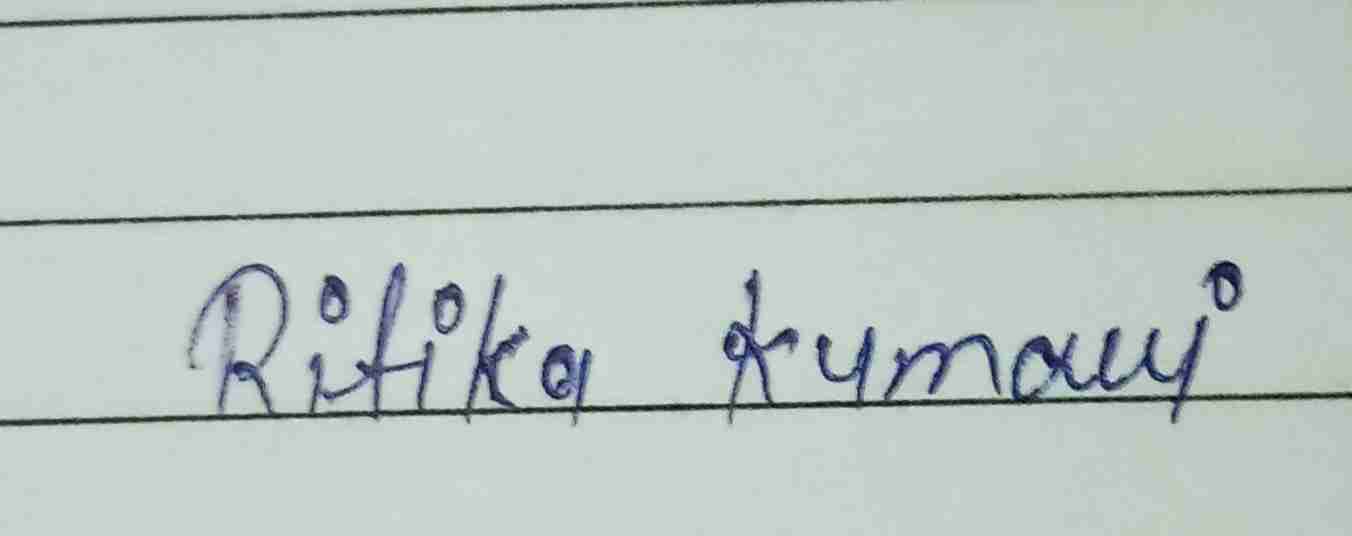 Ritika Kumari